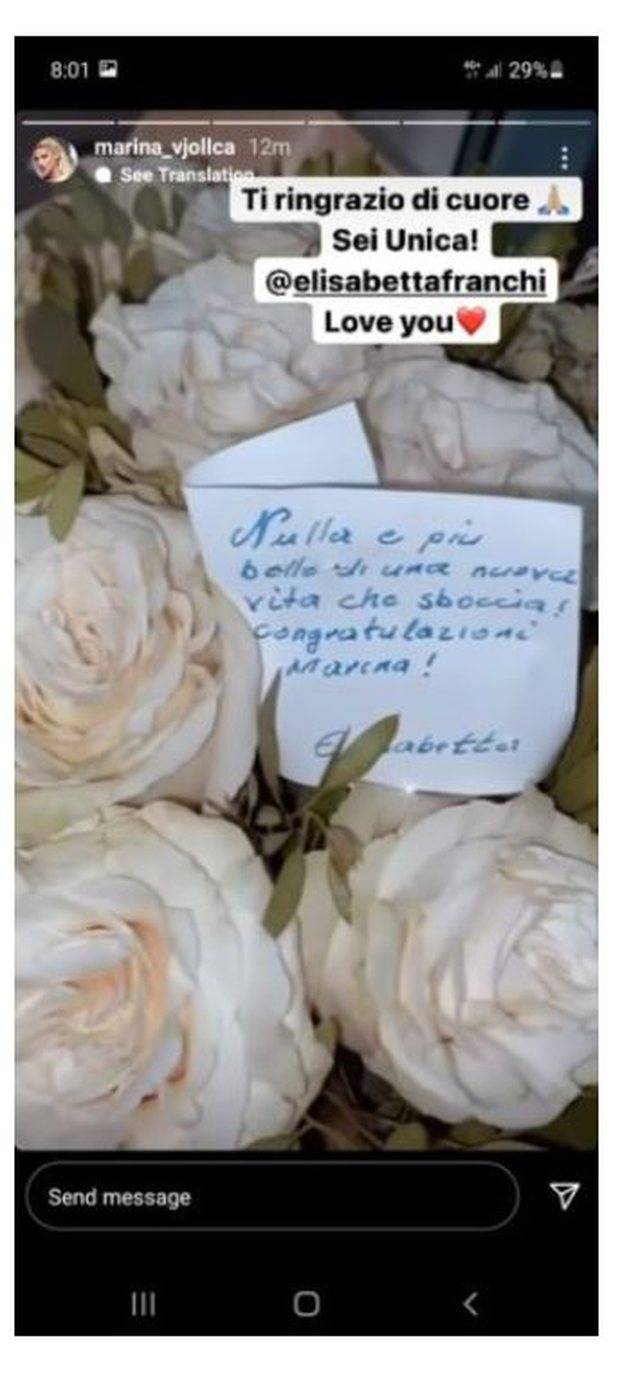 8:01
4G+ 29%
marina_vjollca 12m
See Translation
Ti ringrazio di cuore 🙏🏼
Sei Unica!
@elisabettafranchi
Love you❤️
Nulla e più
bello di una nuova
vita che sboccia!
congratulazioni
Marina!
Send message